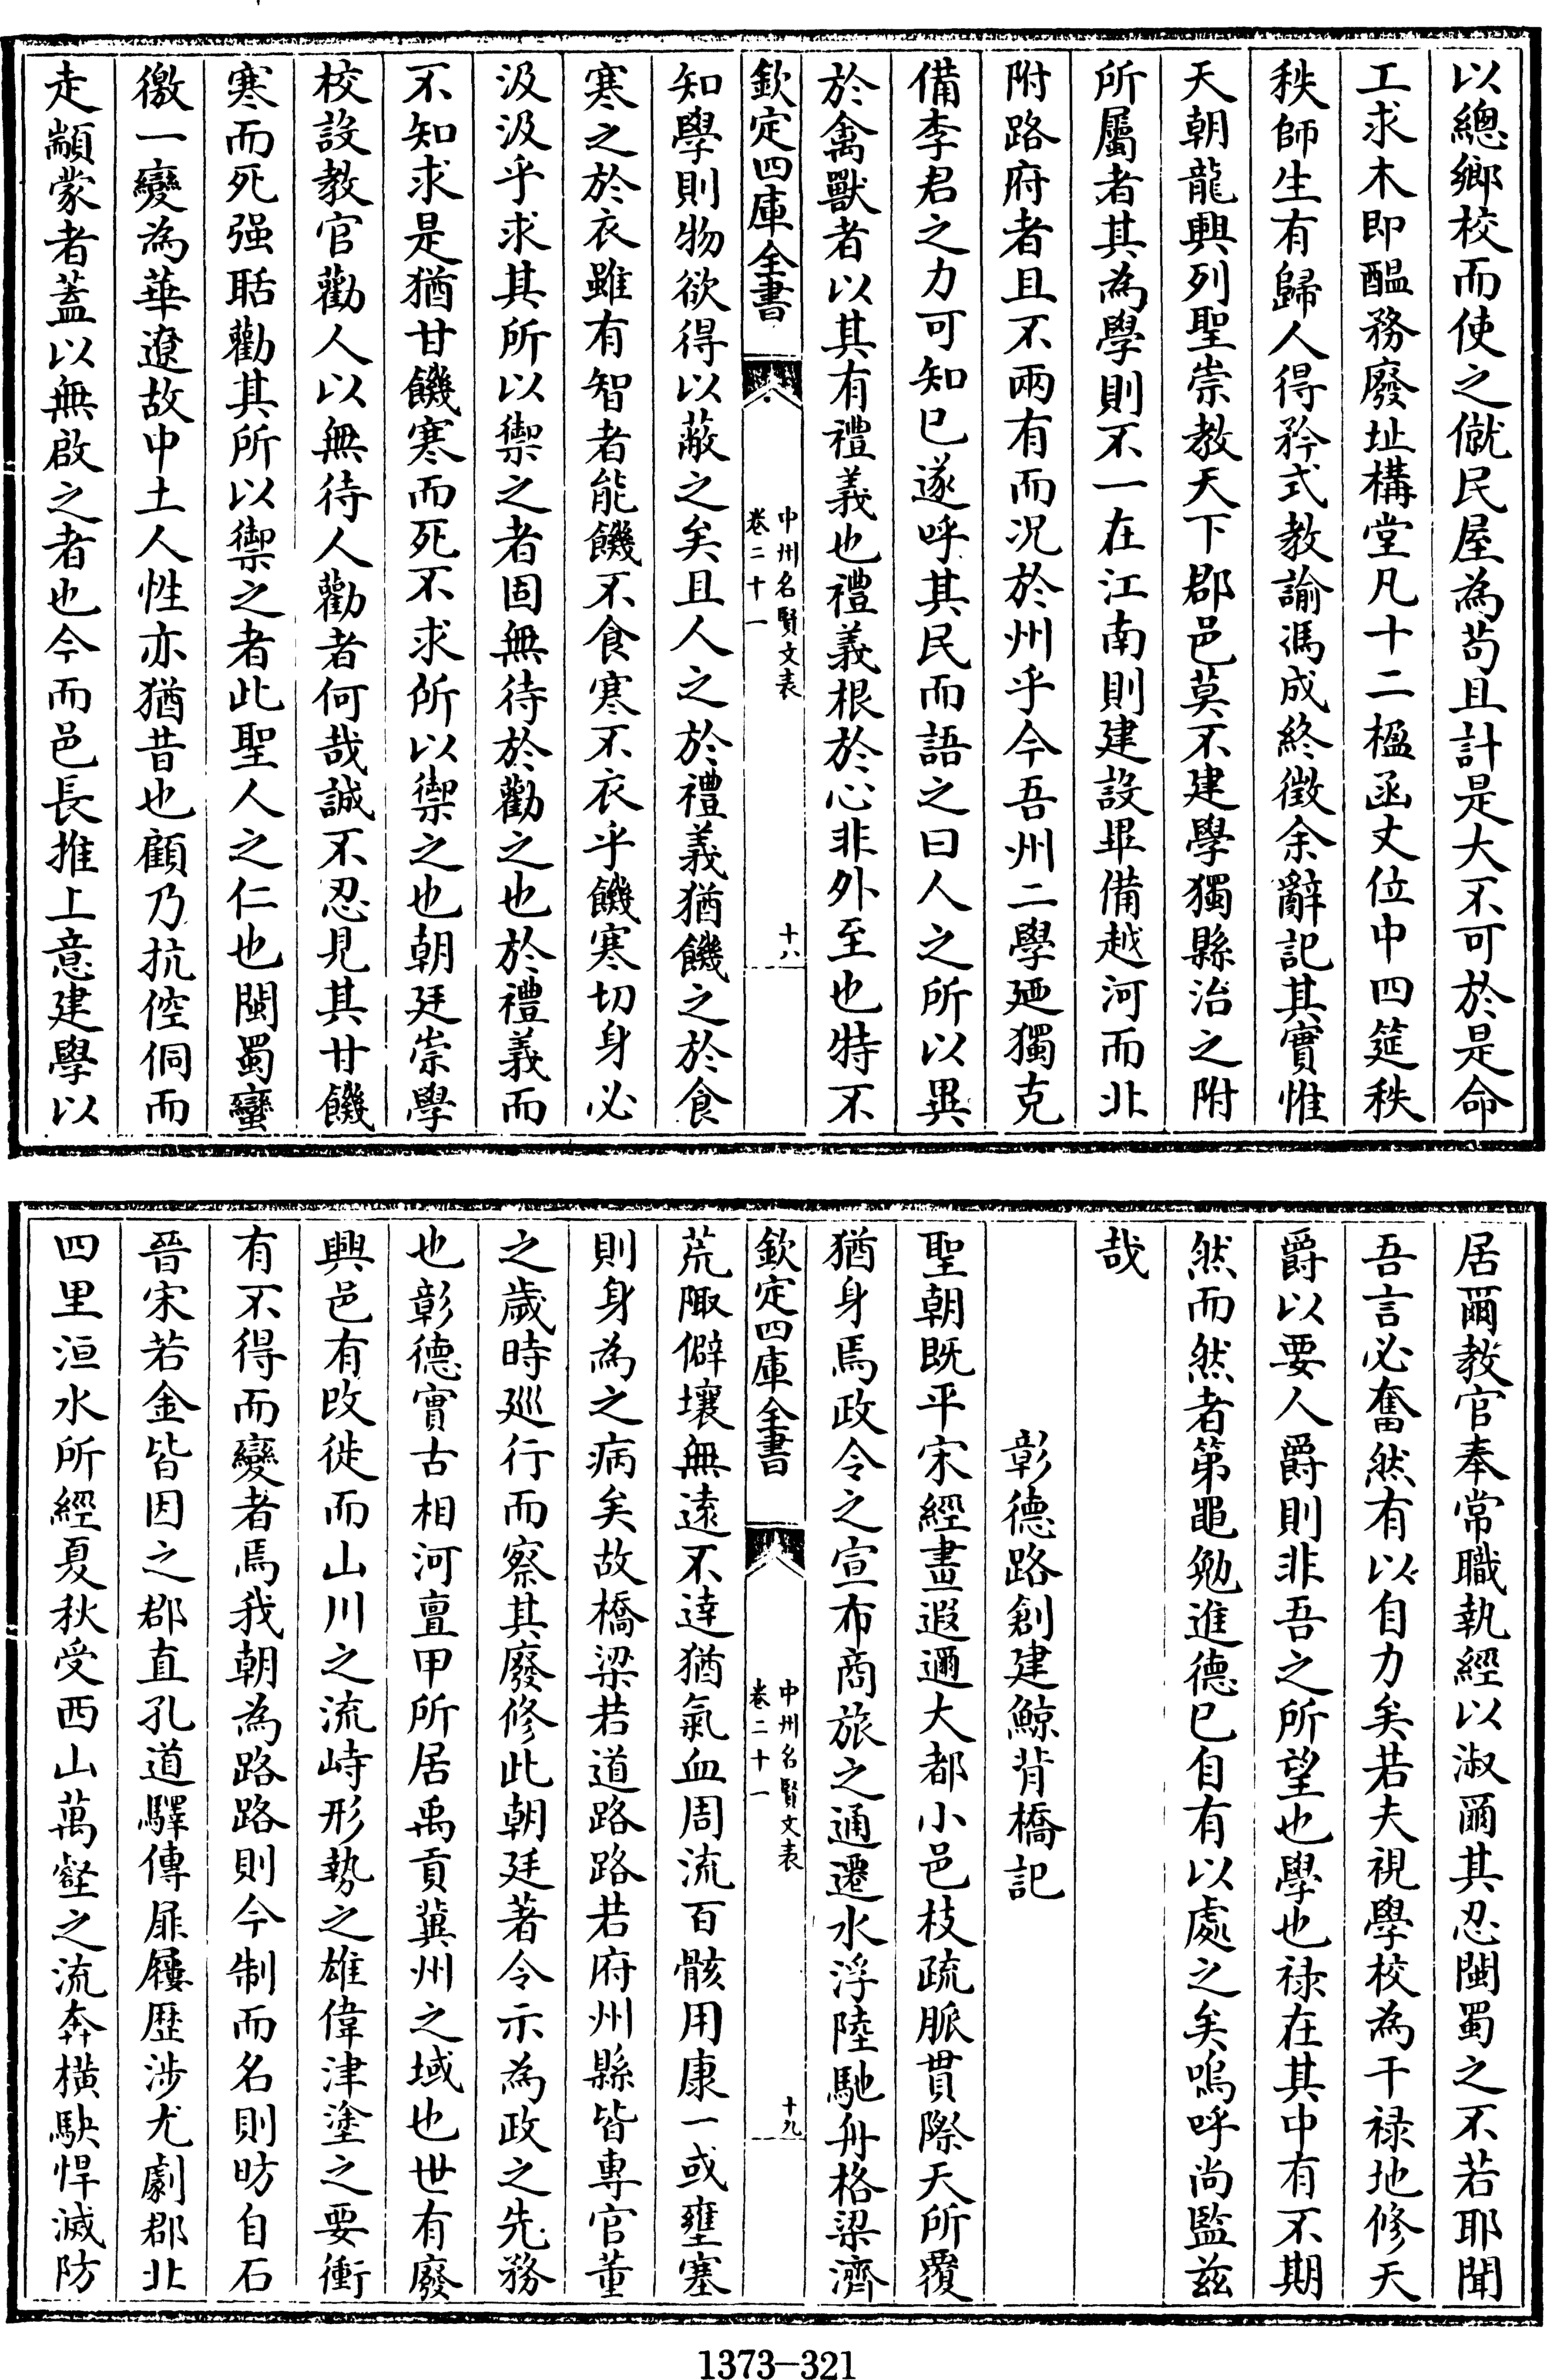 以總鄉校而使之僦民屋為苟且計是大不可於是命
工求木即醖務廢址構堂凡十二楹函丈位中四筵秩
秩師生有歸人得矜式教諭馮成終徵余辭記其實惟
天朝龍興列聖崇教天下郡邑莫不建學獨縣治之附
所屬者其為學則不一在江南則建設畢備越河而北
附路府者且不兩有而况於州乎今吾州二學廼獨克
備李君之力可知已遂呼其民而語之曰人之所以異
於禽獸者以其有禮義也禮義根於心非外至也特不
欽定四庫全書
中州名賢文表
卷二十一
十八
知學則物欲得以蔽之矣且人之於禮義猶饑之於食
寒之於衣雖有智者能饑不食寒不衣乎饑寒切身必
汲汲乎求其所以禦之者固無待於勸之也於禮義而
不知求是猶甘饑寒而死不求所以禦之也朝廷崇學
校設教官勸人以無待人勸者何哉誠不忍見其甘饑
寒而死强聒勸其所以禦之者此聖人之仁也閩蜀蠻
徼一變為華遼故中土人性亦猶昔也顧乃抗倥侗而
走顓蒙者蓋以無啟之者也今而邑長推上意建學以
居爾教官奉常職執經以淑爾其忍閩蜀之不若耶聞
吾言必奮然有以自力矣若夫視學校為干禄地修天
爵以要人爵則非吾之所望也學也禄在其中有不期
然而然者第黽勉進德已自有以處之矣嗚呼尚監兹
哉
彰德路創建鯨背橋記
聖朝既平宋經畫遐邇大都小邑枝疏脈貫際天所覆
猶身焉政令之宣布商旅之通遷水浮陸馳舟格梁濟
欽定四庫全書
中州名賢文表
卷二十一
十九
荒陬僻壤無遠不達猶氣血周流百骸用康一或壅塞
則身為之病矣故橋梁若道路路若府州縣皆專官董
之歲時廵行而察其廢修此朝廷著令示為政之先務
也彰德實古相河亶甲所居禹貢冀州之域也世有廢
興邑有改徙而山川之流峙形勢之雄偉津塗之要衝
有不得而變者焉我朝為路路則今制而名則昉自石
晉宋若金皆因之郡直孔道驛傳扉屨歴涉尤劇郡北
四里洹水所經夏秋受西山萬壑之流奔橫駃悍滅防
1373—321